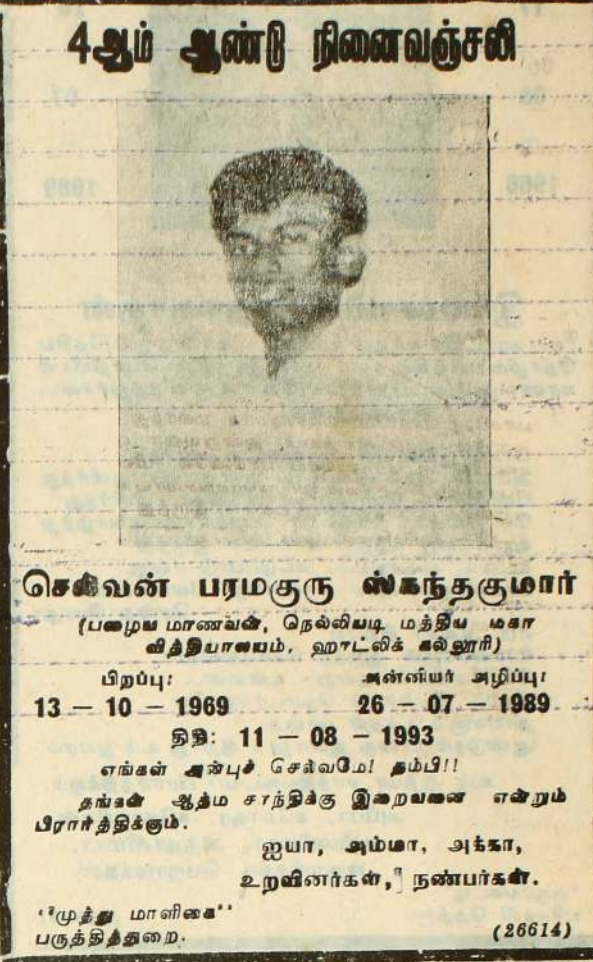 4ஆம் ஆண்டு நினைவஞ்சலி
செல்வன் பரமகுரு ஸ்கந்தகுமார்
(பழைய மாணவன், நெல்லியடி மத்திய மகா
வித்தியாலயம், ஹாட்லிக் கல்லூரி)
பிறப்பு: அன்னியர் அழிப்பு:
13 – 10 – 1969 26 – 07 – 1989
திதி: 11 – 08 – 1993
எங்கள் அன்புச் செல்வமே! தம்பி!!
தங்கள் ஆத்ம சாந்திக்கு இறைவனை என்றும்
பிரார்த்திக்கும்.
ஐயா, அம்மா, அக்கா,
உறவினர்கள், நண்பர்கள்.
"முத்து மாளிகை"
பருத்தித்துறை. (26614)